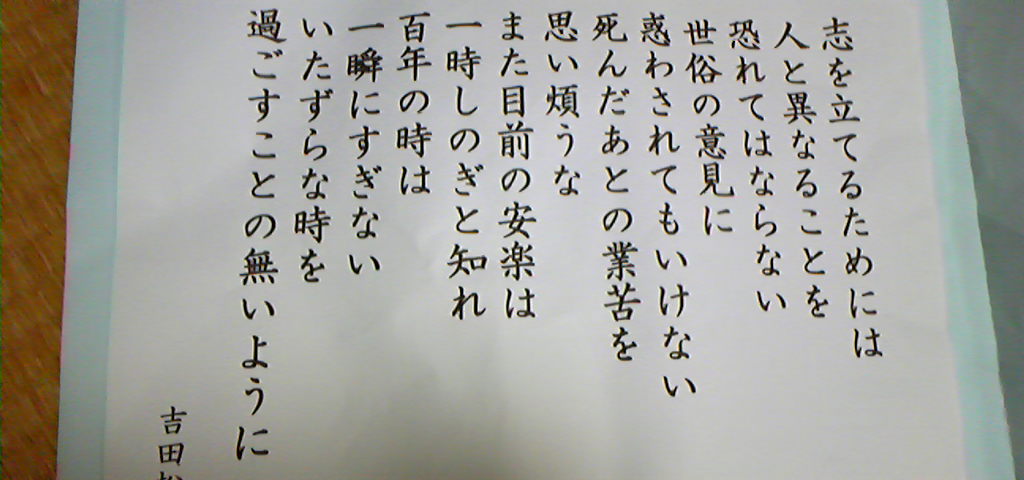 志を立てるためには
人と異なることを
恐れてはならない
世俗の意見に
惑わされてもいけない
死んだあとの業苦を
思い煩うな
また目前の安楽は
一時しのぎと知れ
百年の時は
一瞬にすぎない
いたずらな時を
過ごすことの無いように
吉田